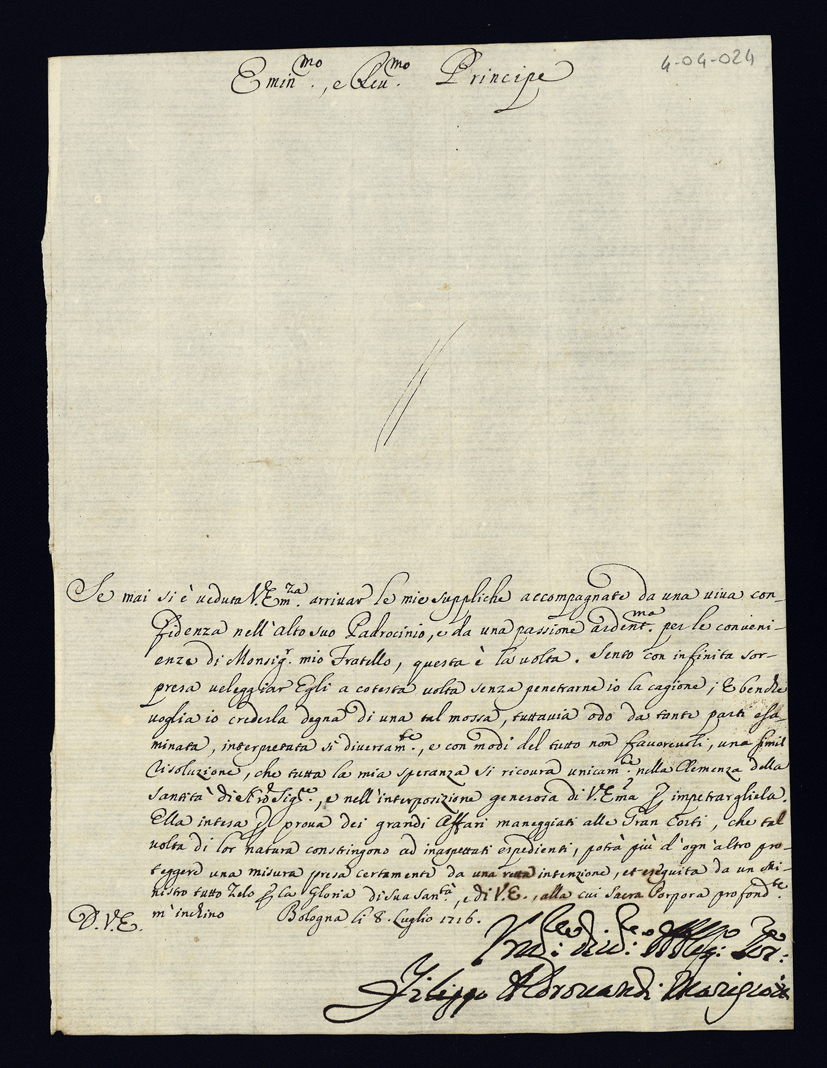 4-04-024
Emin.mo, e Reu.mo Principe
Se mai si è veduta V. Em.za arrivar le mie suppliche accompagnate da una viva con-
fidenza nell'alto suo Padrocinio, e da una passione ardent.ma per le conveni-
enze di Monsig.r mio Fratello, questa è la volta. Sento con infinita sor-
presa veleggiar Egli a cotesta volta senza penetrarne io la cagione; E benche
voglia io crederla degna di una tal mossa, tuttavia odo da tante parti esa-
minata, interpretata si diversam.te, e con modi del tutto non favorevoli, una simil
Risoluzione, che tutta la mia speranza si ricovra unicam.te nella Clemenza della
Santità di Sig.re, e nell'interposizione generosa di V. Em.a p impetrargliela.
Ella intesa p prova dei grandi Affari maneggiati alle Gran Corti, che tal
volta di lor natura constringono ad inaspettati espedienti, potrà più d'ogn'altro pro-
teggere una misura presa certamente da una retta intenzione, et eseguita da un Mi-
nistro tutto Zelo p la Gloria di Sua San.tà, e di V. E., alla cui Sacra Porpora profond.te
m'inchino Bologna li 8. Luglio 1716.
D. V. E.
Filippo Aldrovandi Mariscotti